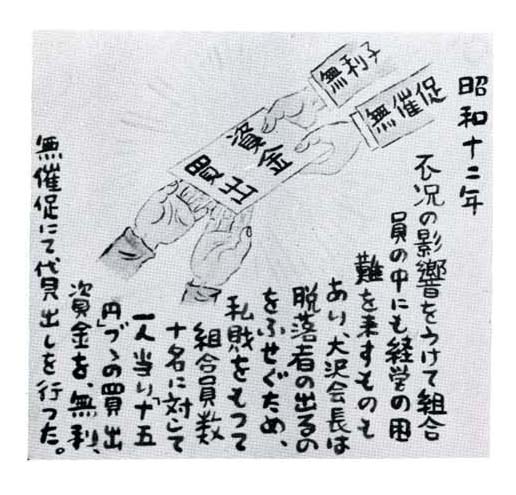 昭和十二年
不況の影響をうけて組合
員の中にも経営の困
難を来すものも
あり、大沢会長は
脱落者の出るの
をふせぐため、
私財をもつて
組合員数
十名に対して
一人当り「十五
円」づゝの買出
資金を、無利、
無催促にて代見出しを行つた。
無利子
無催促
買出
資金